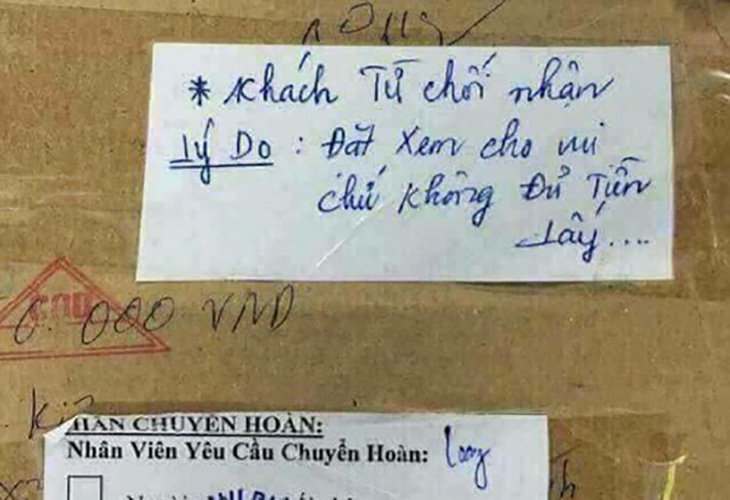 * Khách Từ chối nhận
Lý Do : Đặt xem cho vui
chứ không Đủ Tiền
Lấy....
COD
000 VND
HÀN CHUYỂN HOÀN:
Nhân Viên Yêu Cầu Chuyển Hoàn: Long